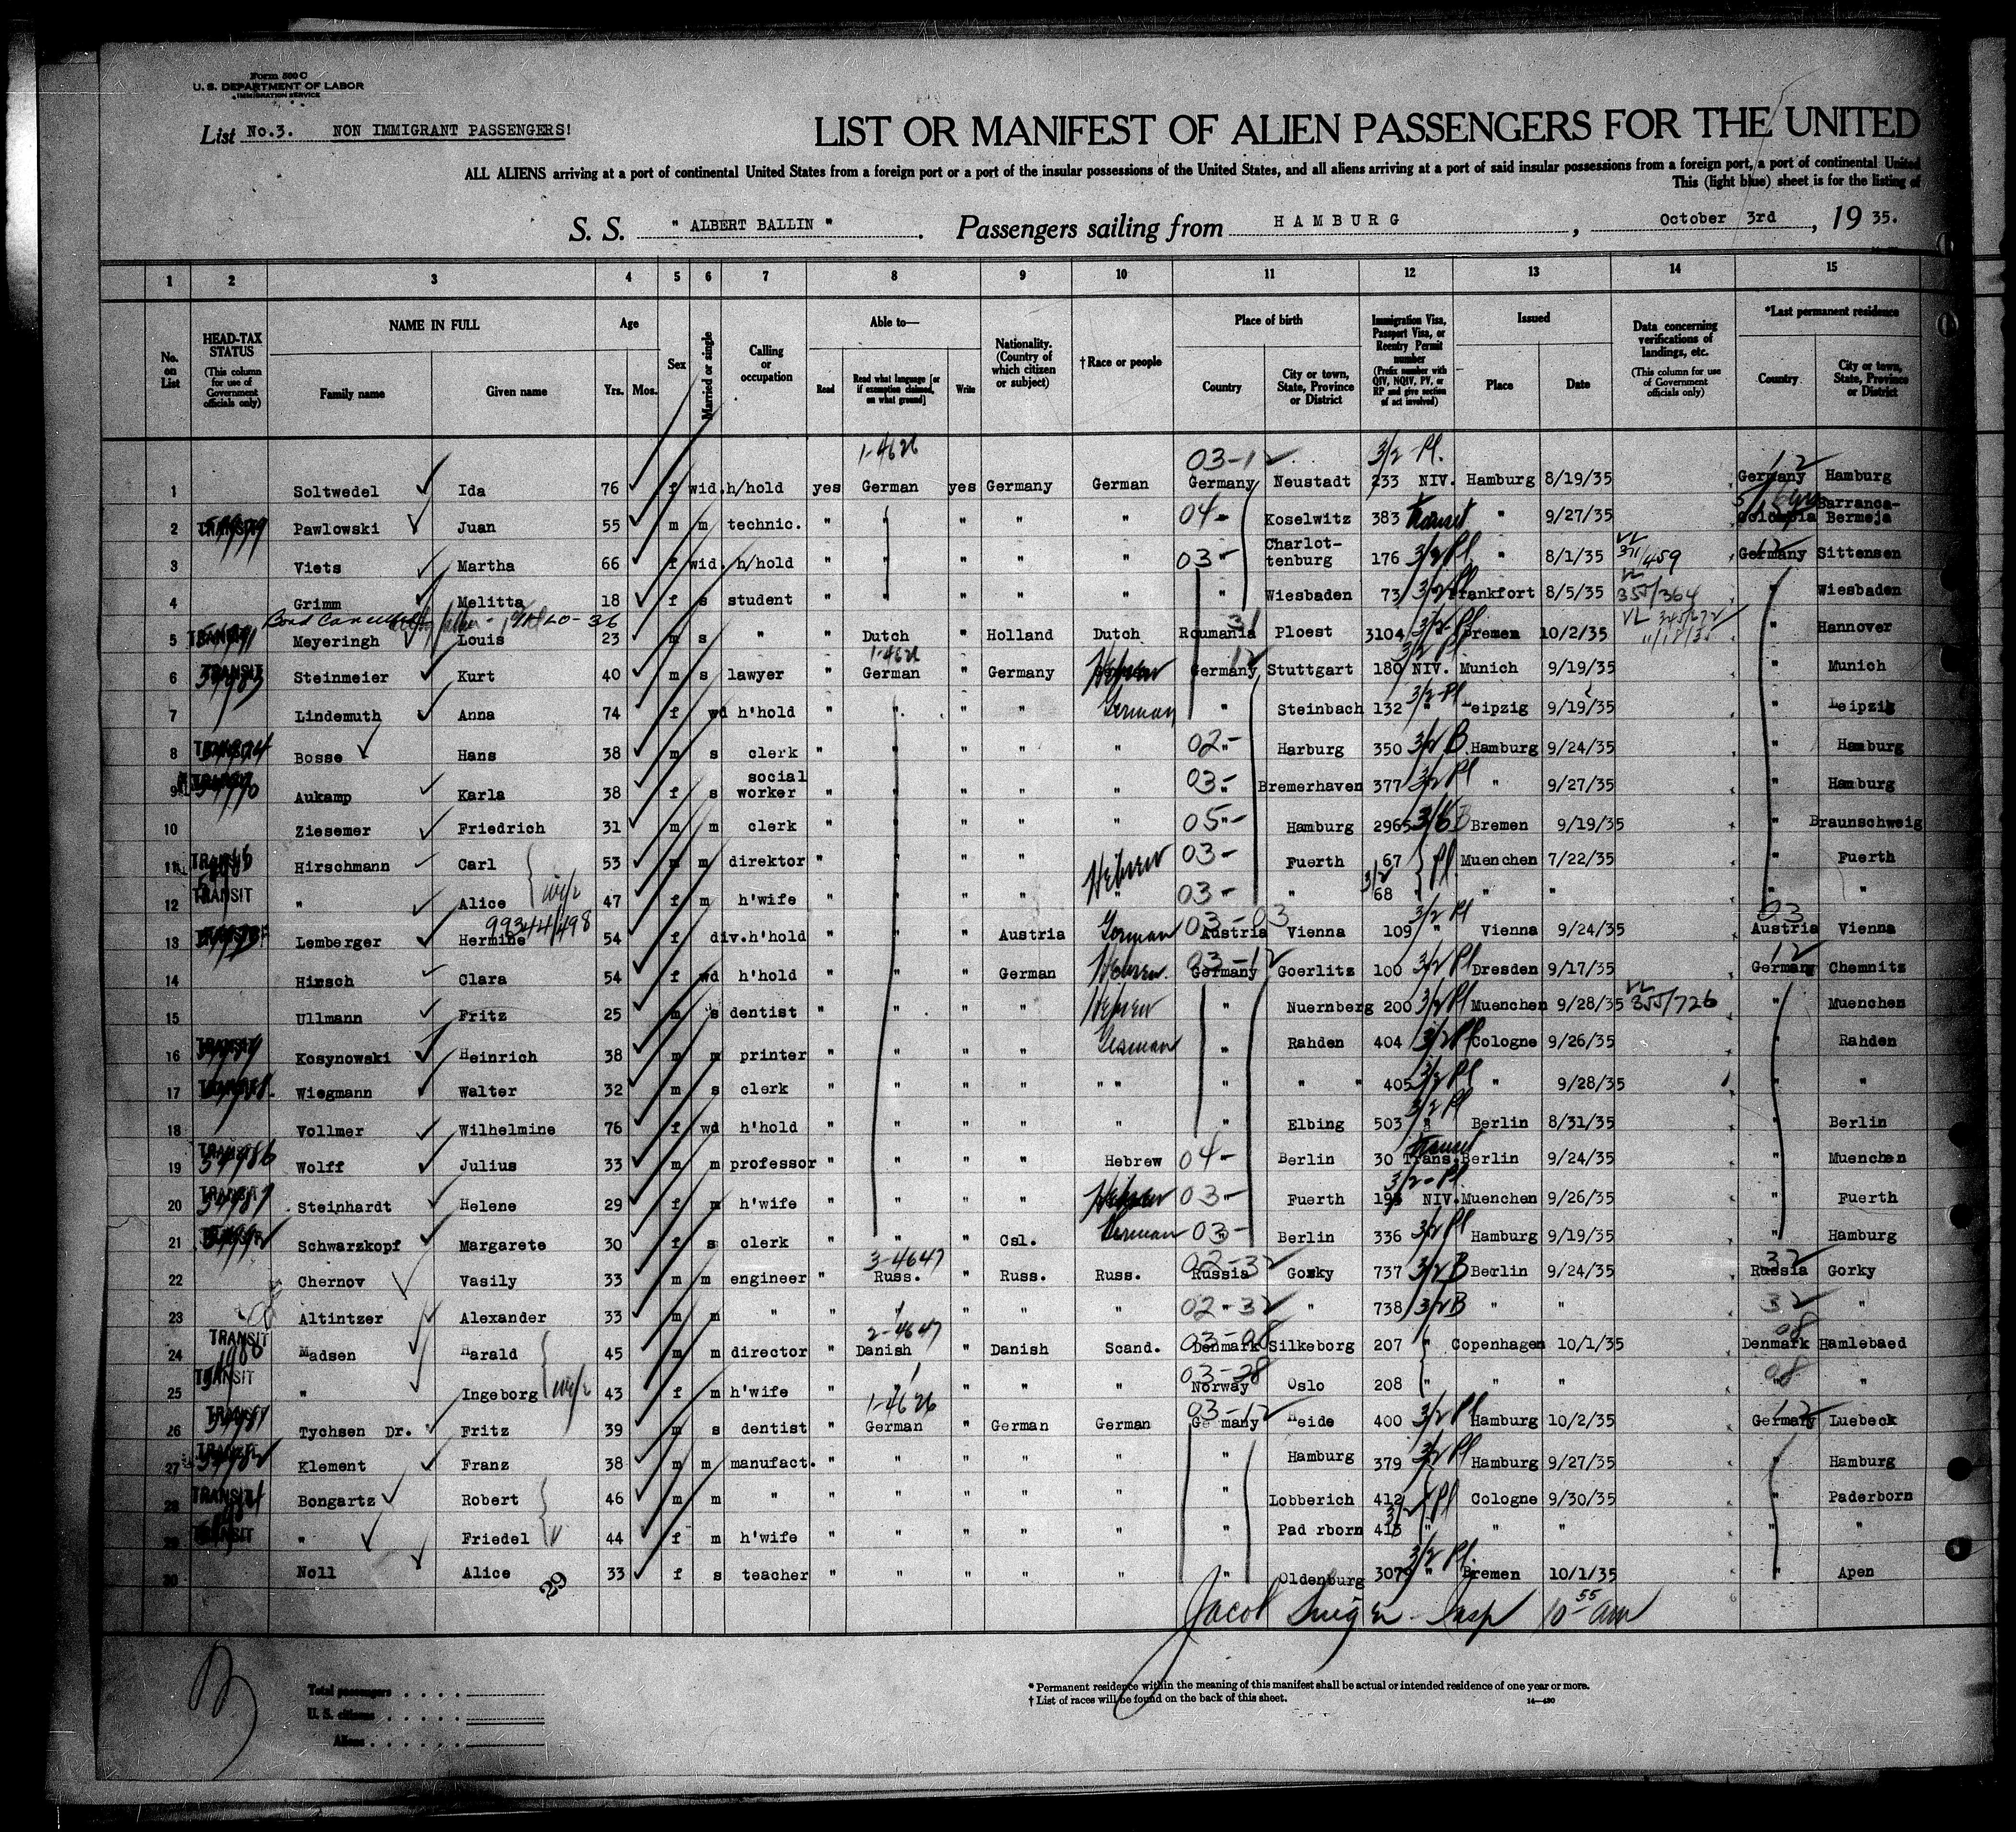 Form 500 C
U. S. DEPARTMENT OF LABOR
IMMIGRATION SERVICE
List No.3. NON IMMIGRANT PASSENGERS!
LIST OR MANIFEST OF ALIEN PASSENGERS FOR THE UNITED
ALL ALIENS arriving at a port of continental United States from a foreign port or a port of the insular possessions of the United States, and all aliens arriving at a port of said insular possessions from a foreign port, a port of continental United
This (light blue) sheet is for the listing of
S. S. " ALBERT BALLIN " . Passengers sailing from HAMBURG , October 3rd , 19 35.
1 2 3 4 5 6 7 8 9 10 11 12 13 14 15
No. on List
HEAD-TAX STATUS (This column for use of Government officials only)
NAME IN FULL
Family name Given name
Age
Yrs. Mos.
Sex
Married or single
Calling or occupation
Able to—
Read Read what language [or if exemption claimed, on what ground] Write
Nationality. (Country of which citizen or subject)
† Race or people
Place of birth
Country City or town, State, Province or District
Immigration Visa, Passport Visa, or Reentry Permit number (Prefix number with QIV, NQIV, PV, or RP and give section of act involved)
Issued
Place Date
Data concerning verifications of landings, etc. (This column for use of Government officials only)
*Last permanent residence
Country City or town, State, Province or District
1-4626 03-12 3/2 Pl. 12
1 Soltwedel Ida 76 f wid. h/hold yes German yes Germany German Germany Neustadt 233 NIV. Hamburg 8/19/35 Germany Hamburg
2 TRANSIT Pawlowski Juan 55 m m technic. " " " " " 04- Koselwitz 383 Transit " 9/27/35 Colombia Barranca-Bermeja
3 Viets Martha 66 f wid. h/hold " " " " " 03- Charlot-tenburg 176 3/2 Pl " 8/1/35 VL 371/459 Germany 12 Sittensen
4 Grimm Melitta 18 f s student " " " " " " Wiesbaden 73 3/2 Pl Frankfort 8/5/35 VL 355/364 " Wiesbaden
Bond Cancelled
5 TRANSIT Meyeringh Louis 23 m s " " Dutch " Holland Dutch Roumania 31 Ploest 3104 3/2 Pl Bremen 10/2/35 VL 345/672 11/18/35 " Hannover
6 TRANSIT Steinmeier Kurt 40 m s lawyer " 1-4626 German " Germany Hebrew Germany 12 Stuttgart 180 NIV. 3/2 Pl Munich 9/19/35 " Munich
7 Lindemuth Anna 74 f wd h'hold " " " " German " Steinbach 132 3/2 Pl " Leipzig 9/19/35 " Leipzig
8 TRANSIT Bosse Hans 38 m s clerk " " " " " 02- " Harburg 350 3/2 B Hamburg 9/24/35 " Hamburg
9 TRANSIT Aukamp Karla 38 f s social worker " " " " " 03- " Bremerhaven 377 3/2 Pl " 9/27/35 " Hamburg
10 Ziesemer Friedrich 31 m m clerk " " " " " 05- " Hamburg 2965 3/6 B Bremen 9/19/35 " Braunschweig
11 TRANSIT Hirschmann Carl 53 m m direktor " " " " Hebrew 03- Fuerth 67 Pl. Muenchen 7/22/35 " Fuerth
12 TRANSIT " Alice wife 47 f m h'wife " " " " " 03- " " 3/2 68 " " " " "
13 TRANSIT Lemberger Hermine 99344/498 54 f div. h'hold " " " Austria German 03-03 Austria Vienna 109 3/2 Pl " Vienna 9/24/35 03 Austria Vienna
14 Hirsch Clara 54 f wd h'hold " " " German Hebrew 03-12 Germany Goerlitz 100 3/2 Pl Dresden 9/17/35 12 Germany Chemnitz
15 Ullmann Fritz 25 m s dentist " " " " Hebrew " Nuernberg 200 3/2 Pl Muenchen 9/28/35 VL 355/726 " Muenchen
16 TRANSIT Kosynowski Heinrich 38 m m printer " " " " German " Rahden 404 3/2 Pl Cologne 9/26/35 " Rahden
17 TRANSIT Wiegmann Walter 32 m s clerk " " " " " " " " " 405 3/2 Pl " 9/28/35 " "
18 Vollmer Wilhelmine 76 f wd h'hold " " " " " " Elbing 503 3/2 Pl " Berlin 8/31/35 " Berlin
19 TRANSIT 54986 Wolff Julius 33 m m professor " " " " Hebrew 04- Berlin 30 Trans. Transit Berlin 9/24/35 " Muenchen
20 TRANSIT 54987 Steinhardt Helene 29 f m h'wife " " " " Hebrew 03- " Fuerth 195 NIV. 3/2-Pl Muenchen 9/26/35 " Fuerth
21 TRANSIT Schwarzkopf Margarete 30 f s clerk " " " Csl. German 03- " Berlin 336 3/2 Pl Hamburg 9/19/35 " Hamburg
22 Chernov Vasily 33 m m engineer " 3-4647 Russ. " Russ. Russ. 02-32 Russia Gorky 737 3/2 B Berlin 9/24/35 32 Russia Gorky
23 Altintzer Alexander 33 m m " " " " " " 02-32 " " 738 3/2 B " " 32 " "
24 TRANSIT Madsen Harald 45 m m director " 2-4647 Danish " Danish Scand. 03-08 Denmark Silkeborg 207 " Copenhagen 10/1/35 08 Denmark Hamlebaed
25 TRANSIT " Ingeborg wife 43 f m h'wife " " " " " 03-28 Norway Oslo 208 " " " 08 " "
26 TRANSIT Tychsen Dr. Fritz 39 m s dentist " 1-4626 German " German German 03-12 Ge many Heide 400 3/2 Pl Hamburg 10/2/35 12 Germany Luebeck
27 TRANSIT Klement Franz 38 m m manufact. " " " " " " Hamburg 379 3/2 Pl Hamburg 9/27/35 " Hamburg
28 TRANSIT Bongartz Robert 46 m m " " " " " " " Lobberich 412 3/2 Pl Cologne 9/30/35 " Paderborn
29 TRANSIT " Friedel 44 f m h'wife " " " " " " Pad rborn 413 " " " " "
30 Noll Alice 33 f s teacher " " " " " " Oldenburg 3079 3/2 Pl. " Bremen 10/1/35 " Apen
29
Jacob Insp 10 55 am
Total passengers
U. S. citizens
Aliens
* Permanent residence within the meaning of this manifest shall be actual or intended residence of one year or more.
† List of races will be found on the back of this sheet.
14—430